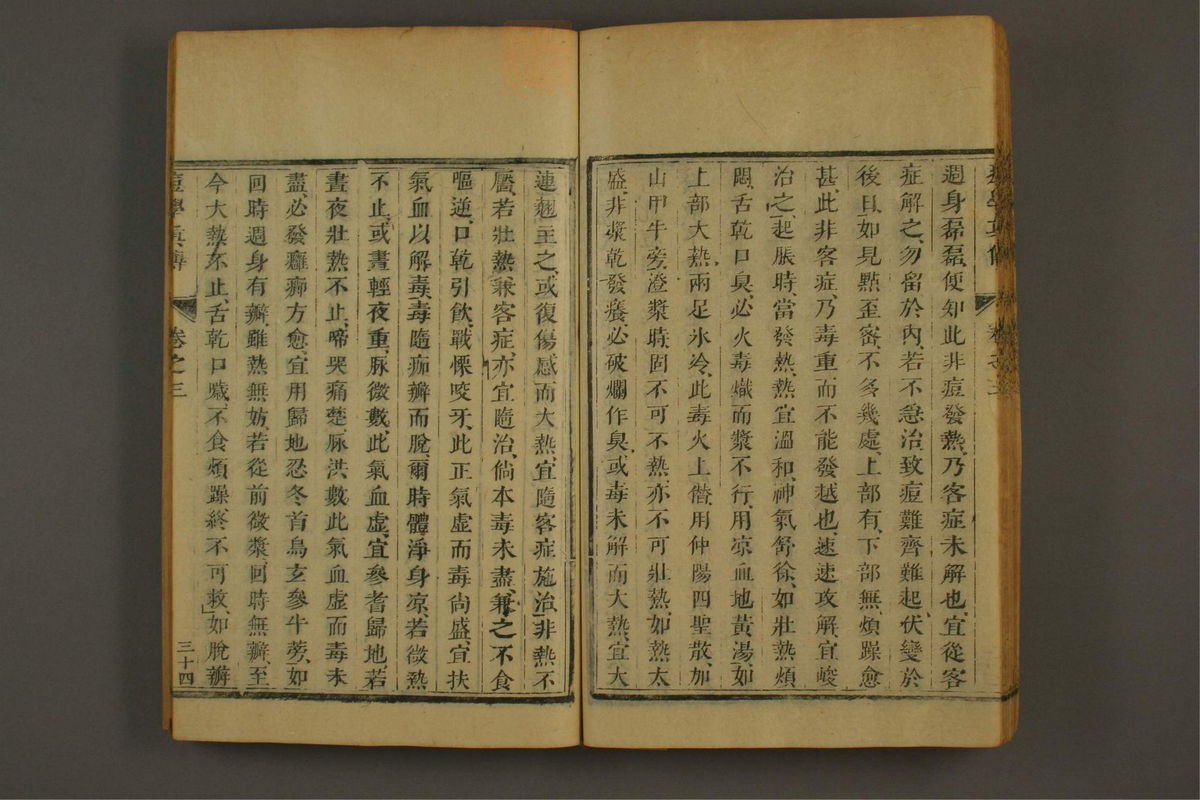 週身磊磊、便知此非痘發熱、乃客症未解也、宜從客
症解之、勿留於內、若不急治、致痘難齊難起、伏變於
後日、如見點歪密、不多幾處、上部有、下部無、煩躁愈
甚、此非客症、乃毒重而不能發越也、速速攻解、宜峻
治之、起脹時、當發熱、熱宜溫和、神氣舒徐、如壯熱煩
悶、舌乾口臭、必火毒熾而漿不行、用凉血地黃湯、如
上部大熱、兩足氷冷、此毒火上僭、用仲陽四聖散、加
山甲牛蒡、澄漿時、固不可不熱、亦不可壯熱、如熱太
盛、非漿乾發癢、必破爛作臭、或毒未解而大熱、宜大
連翹主之、或復傷感而大熱、宜隨客症施治、非熱不
靨、若壯熱兼客症、亦宜隨治、倘本毒未盡、兼之不食
嘔逆、口乾引飲、戰慄咬牙、此正氣虛而毒尚盛、宜扶
氣血以解毒、毒隨痂瓣而脫、爾時體淨身凉、若微熱
不止、或晝輕夜重、脉微數、此氣血虛、宜參耆歸地、若
晝夜壯熱不止、啼哭痛楚、脉洪數、此氣血虛而毒未
盡、必發癰癤方愈、宜用歸地忍冬首烏玄參牛蒡、如
回時週身有瓣、雖熱無妨、若從前微漿、回時無瓣、至
今大熱不止、舌乾口臙、不食煩躁、終不可救、」如脫瓣
痘學真傳 卷之三 三十四